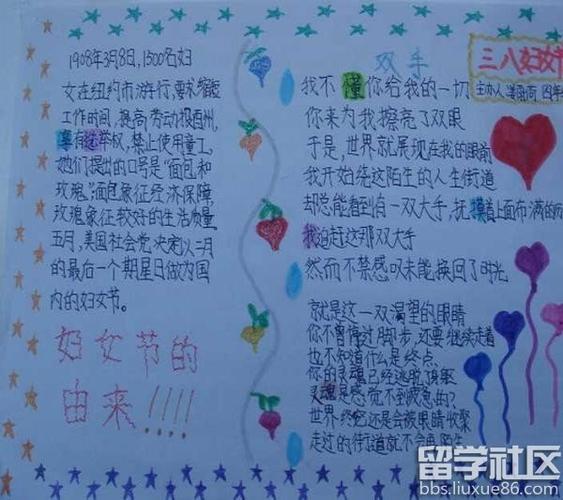 1908年3月8日,1500名妇
女在纽约市游行,要求缩短
工作时间,提高劳动报酬,
享有选举权,禁止使用童工。
她们提出的口号是“面包和
玫瑰”面包象征经济保障,
玫瑰象征较好的生活质量
五月,美国社会党决定以二月
的最后一个期星日做为国
内的妇女节。
妇女节的
由来!!!!
双手
三八妇女节
主办人 四年
我不懂你给我的一切
你来为我擦亮了双眼
于是,世界就展现在我的眼前
我开始绕这陌生的人生街道
却总能看到有一双大手,抚摸着上面布满的
我追赶这那双大手
然而不禁感叹未能换回了时光
就是这一双渴望的眼睛
你不曾停过脚步,还要继续走着
也不知道什么是终点
你的灵魂已经逃脱躯
灵魂是感觉不到疲惫的?
世界终究还是会被眼睛收聚
走过的街道就不会再陌生
留学社区
bbs.liuxue86.com